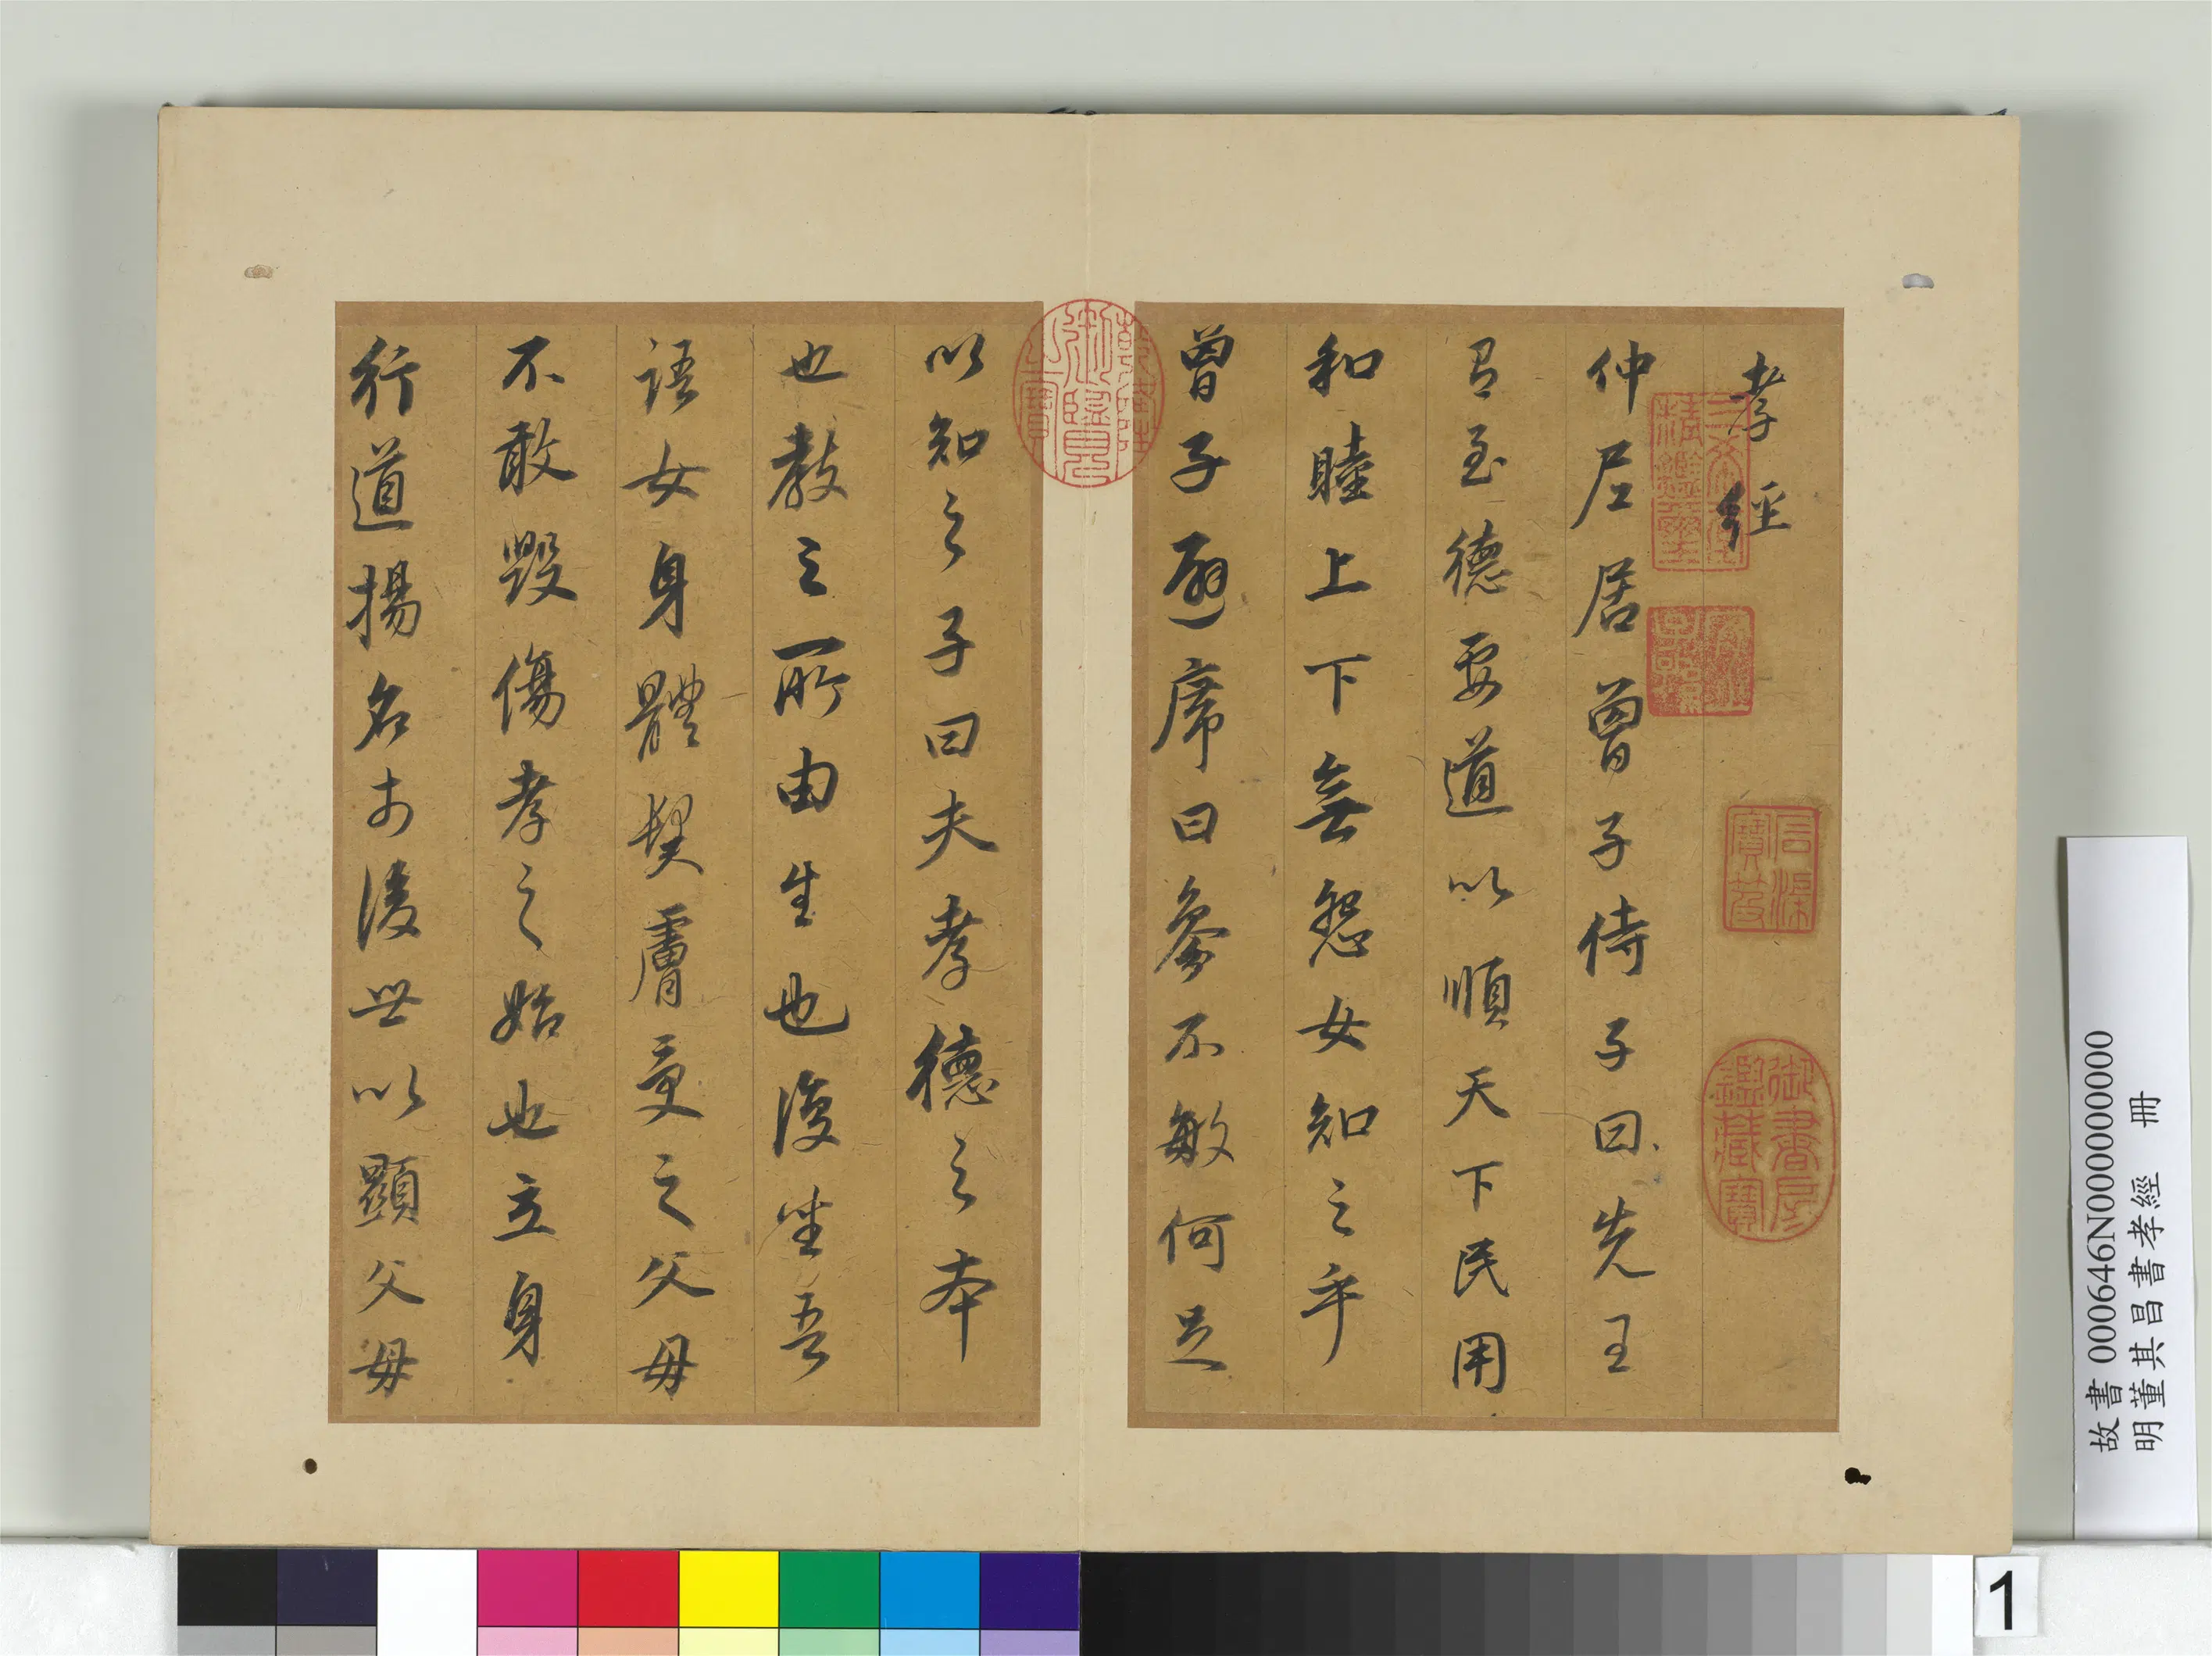 孝經
仲尼居曾子侍子曰先王
有至德要道以順天下民用
和睦上下無怨女知之乎
曾子避席曰參不敏何足
以知之子曰夫孝德之本
也教之所由生也復坐吾
語女身體髮膚受之父母
不敢毀傷孝之始也立身
行道揚名於後世以顯父母
三希堂精鑑璽
石渠寶笈
御書房鑑藏寶
乾隆御覽之寶
故書 000646N000000000
明董其昌書孝經 冊
1